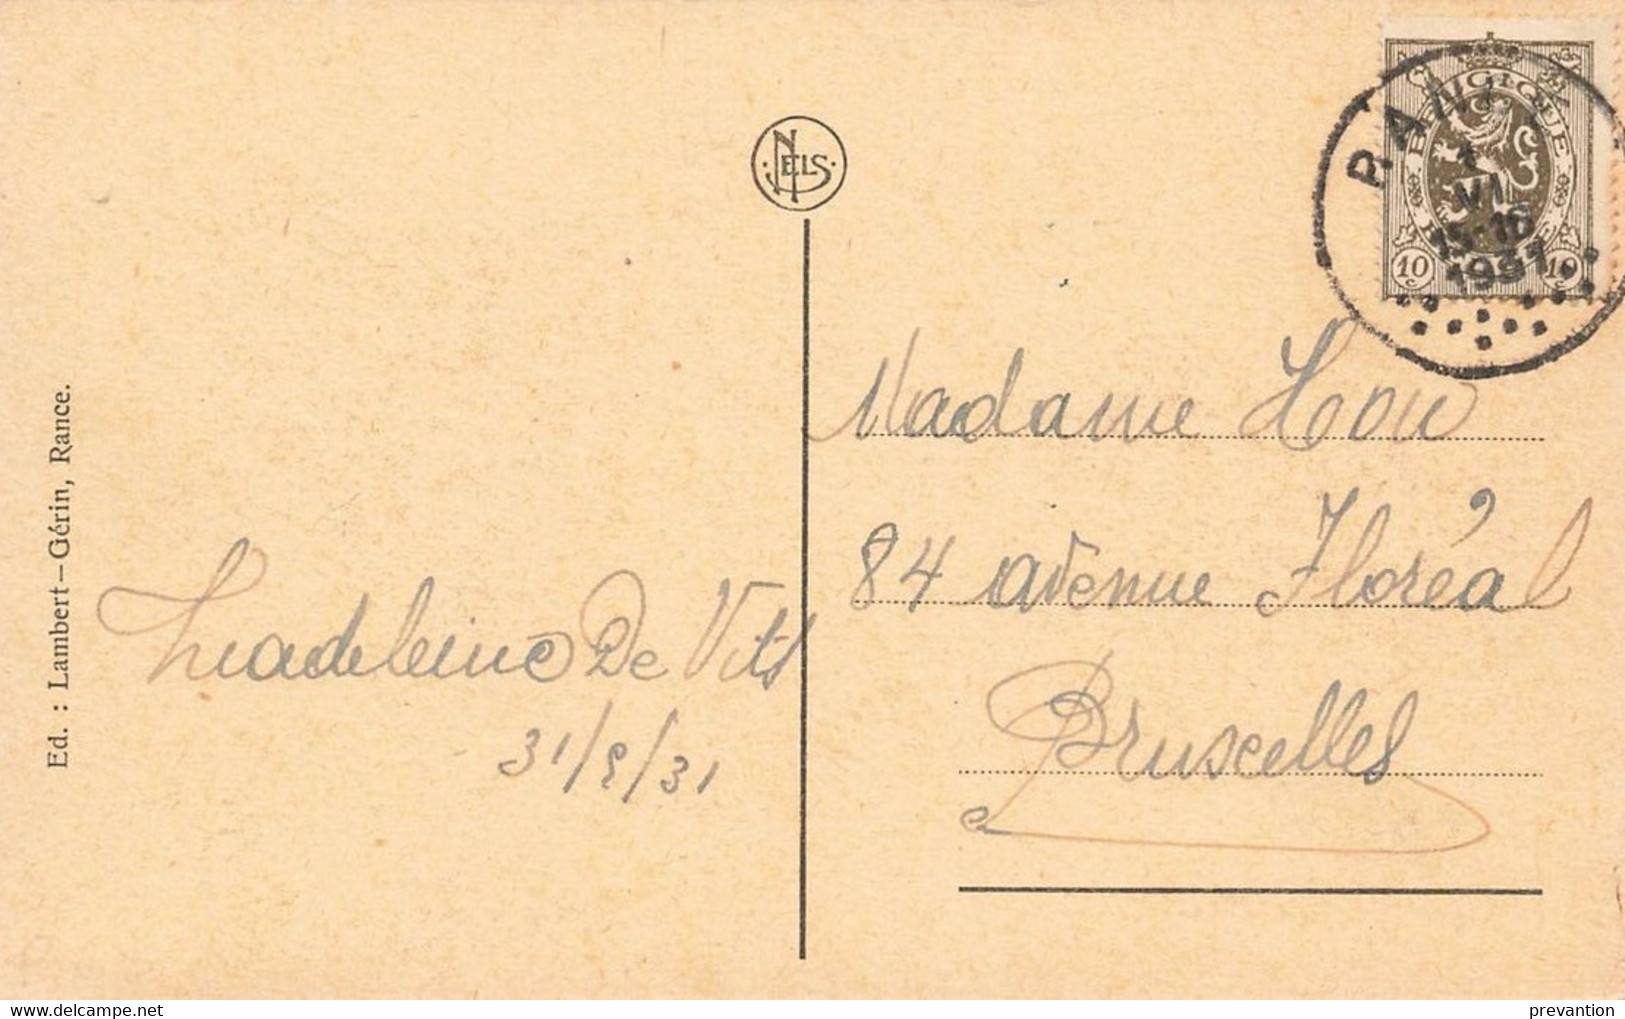 Ed. : Lambert-Gérin, Rance.
NELS
BELGIQUE
10 c 10 c
RAN
1
VI
15-16
1931
Madame Hou
84 avenue Floréal
Bruxelles
Madeleine De Vits
31/5/31
www.delcampe.net
prevantion